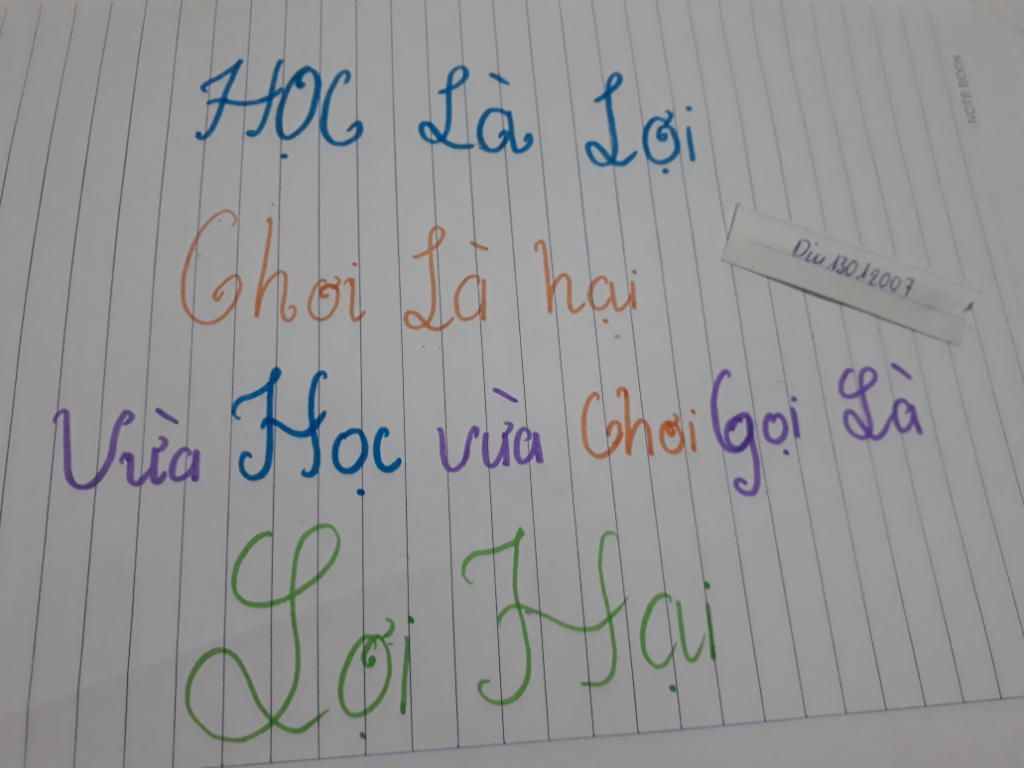 HỌC Là Lợi
Chơi Là hại
Vừa Học vừa Chơi Gọi Là
Lợi Hại
NOTE BOOK